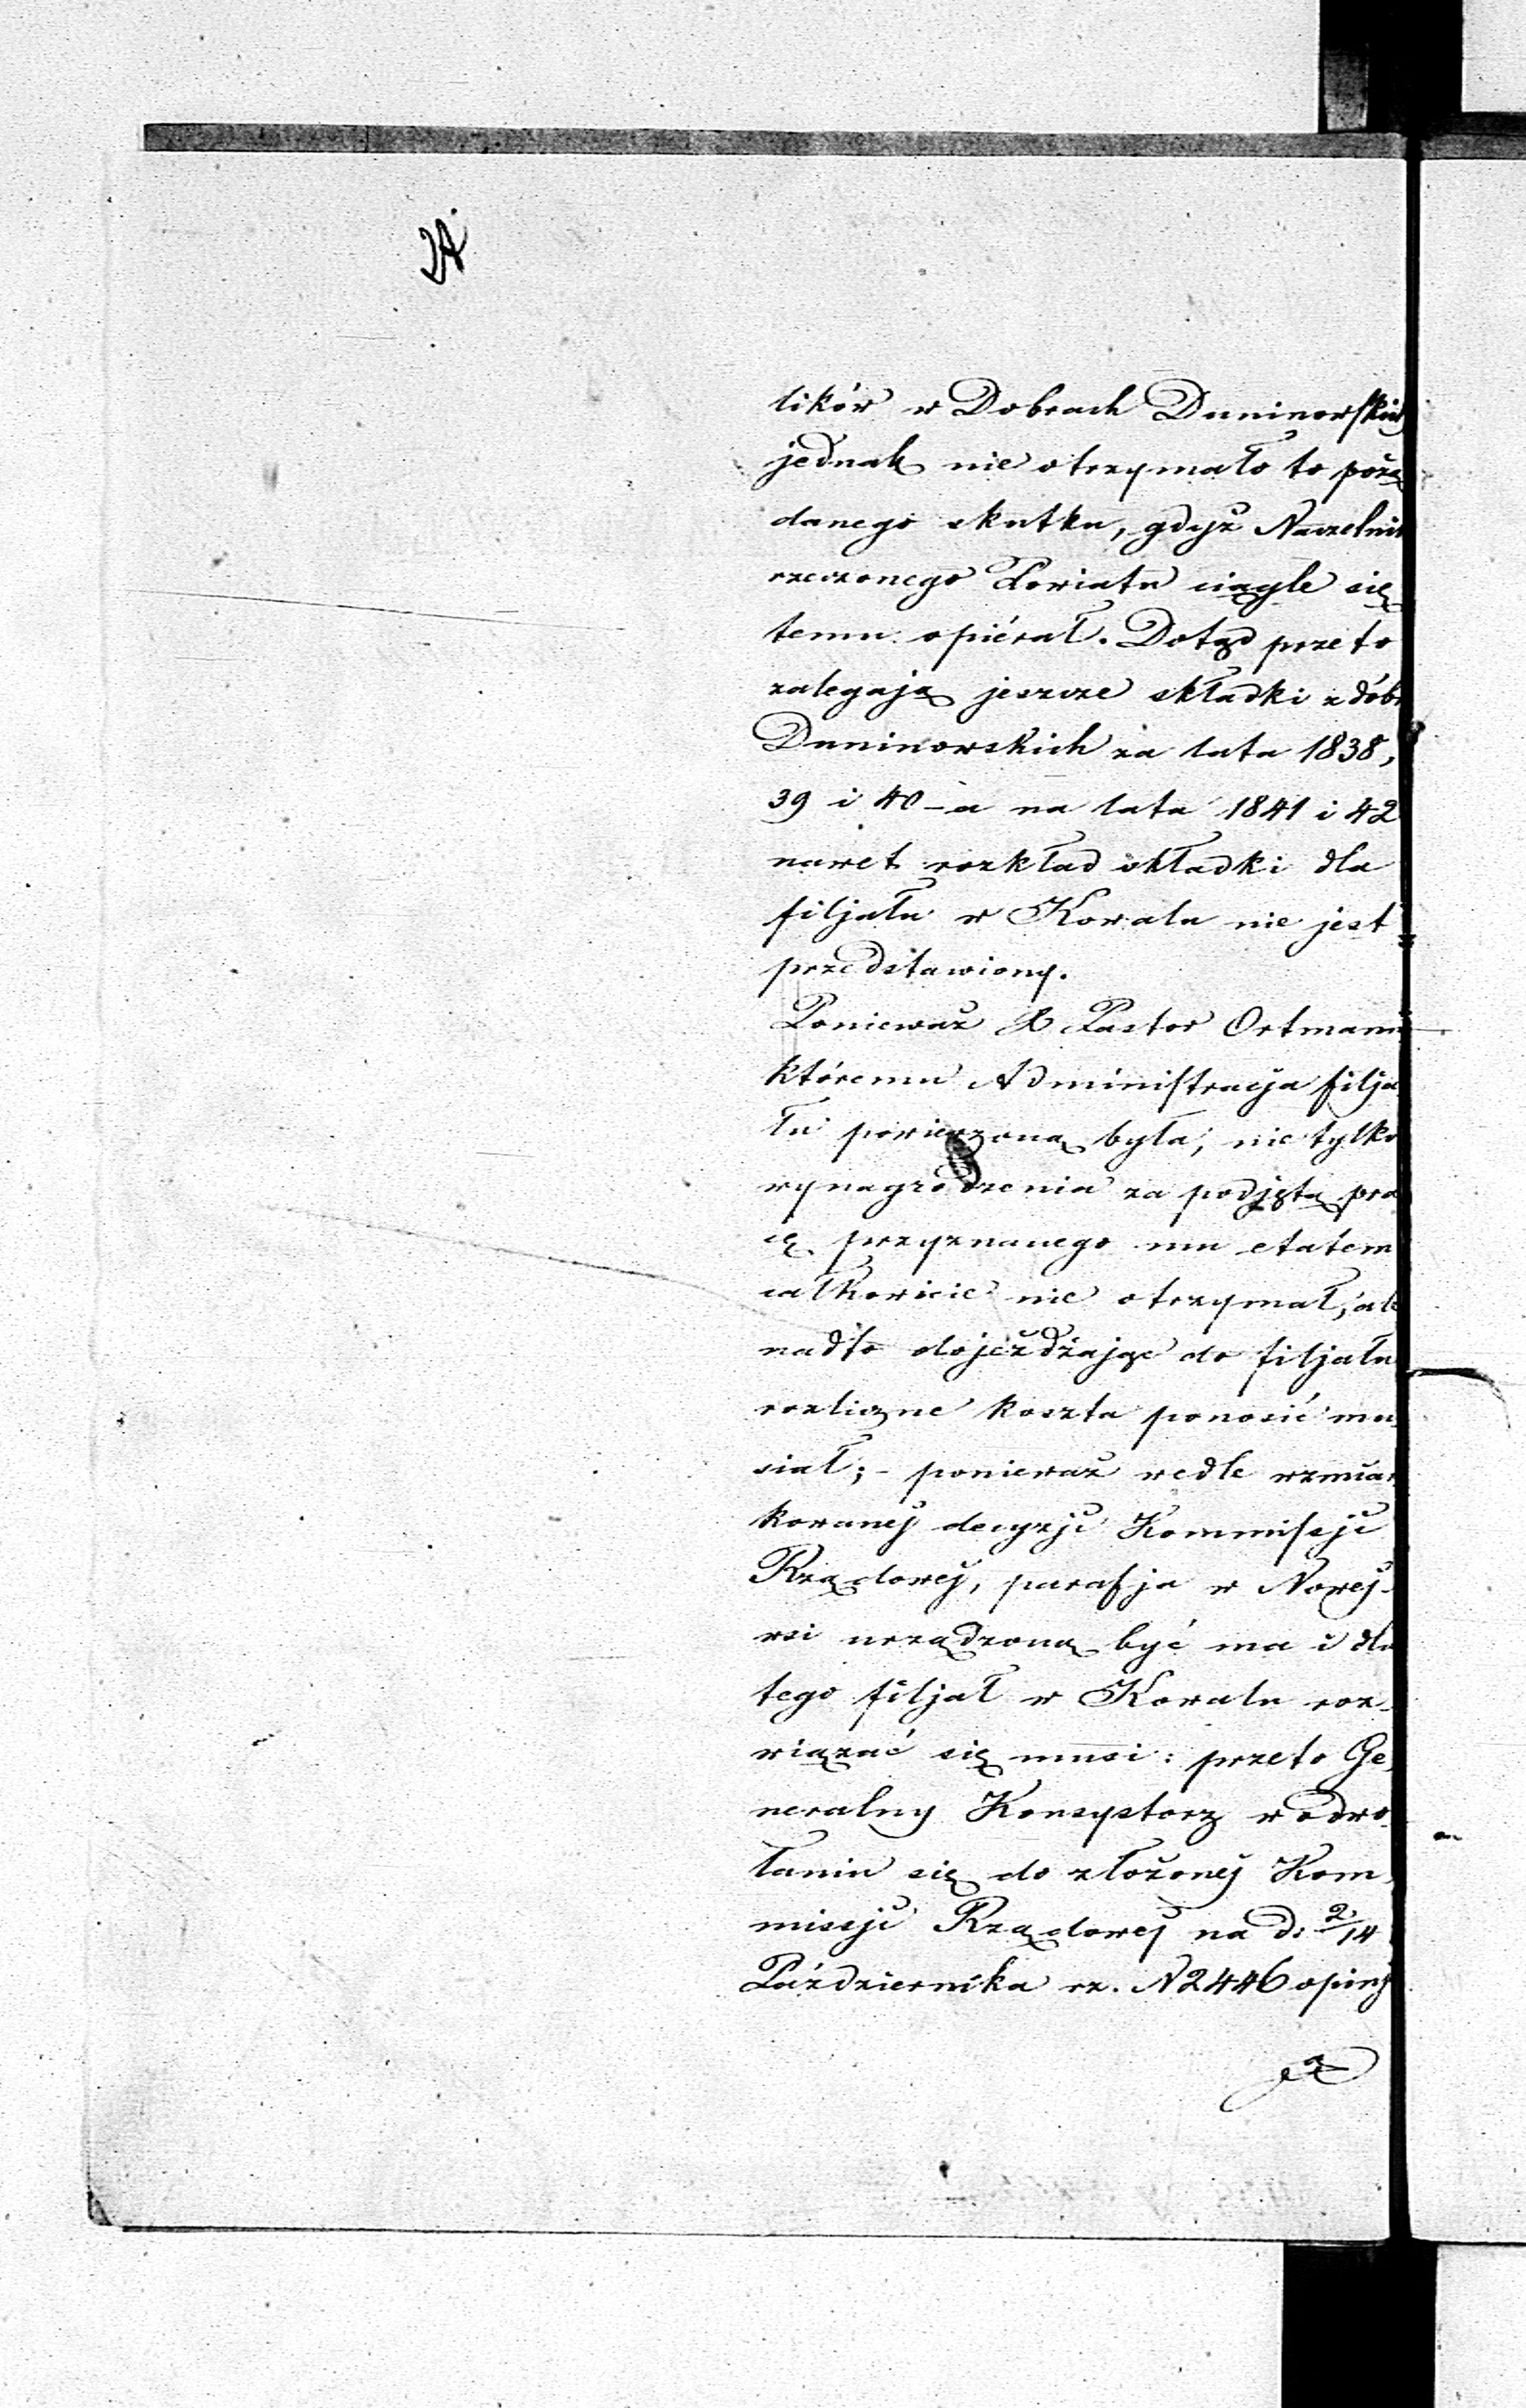 likór w Dobrach Duninowskich
jednak nie otrzymało to pożą
danego skutku, gdyż Naczelnik
rzeczonego Powiatu ciągle się
temu opiérał. Dotąd przeto
zalegają jeszcze składki z dóbr
Duninowskich za lata 1838,
39 i 40 – a na lata 1841 i 42
nawet rozkład składki dla
filjału w Kowalu nie jest
przedstawiony.
Ponieważ X Pastor Ortmann
któremu Administracja filja
łu powierzoną była, nie tylko
wynagrodzenia za podjętą pra
cę przyznanego mu etatem
całkowicie nie otrzymał, ale
nadto dojeżdżając do filjału
rozliczne koszta ponosić mu
siał; – ponieważ wedle wzmian
kowanéj decyzji Kommissji
Rządowéj, parafja w Nowéj-
wsi urządzoną być ma i dla
tego filjał w Kowalu roz-
wiązać się musi: przeto Ge-
neralny Konsystorz w odwo-
łaniu się do złożonéj Kom-
missji Rządowéj na d: 2/14
Października rz. N 2446 opinji